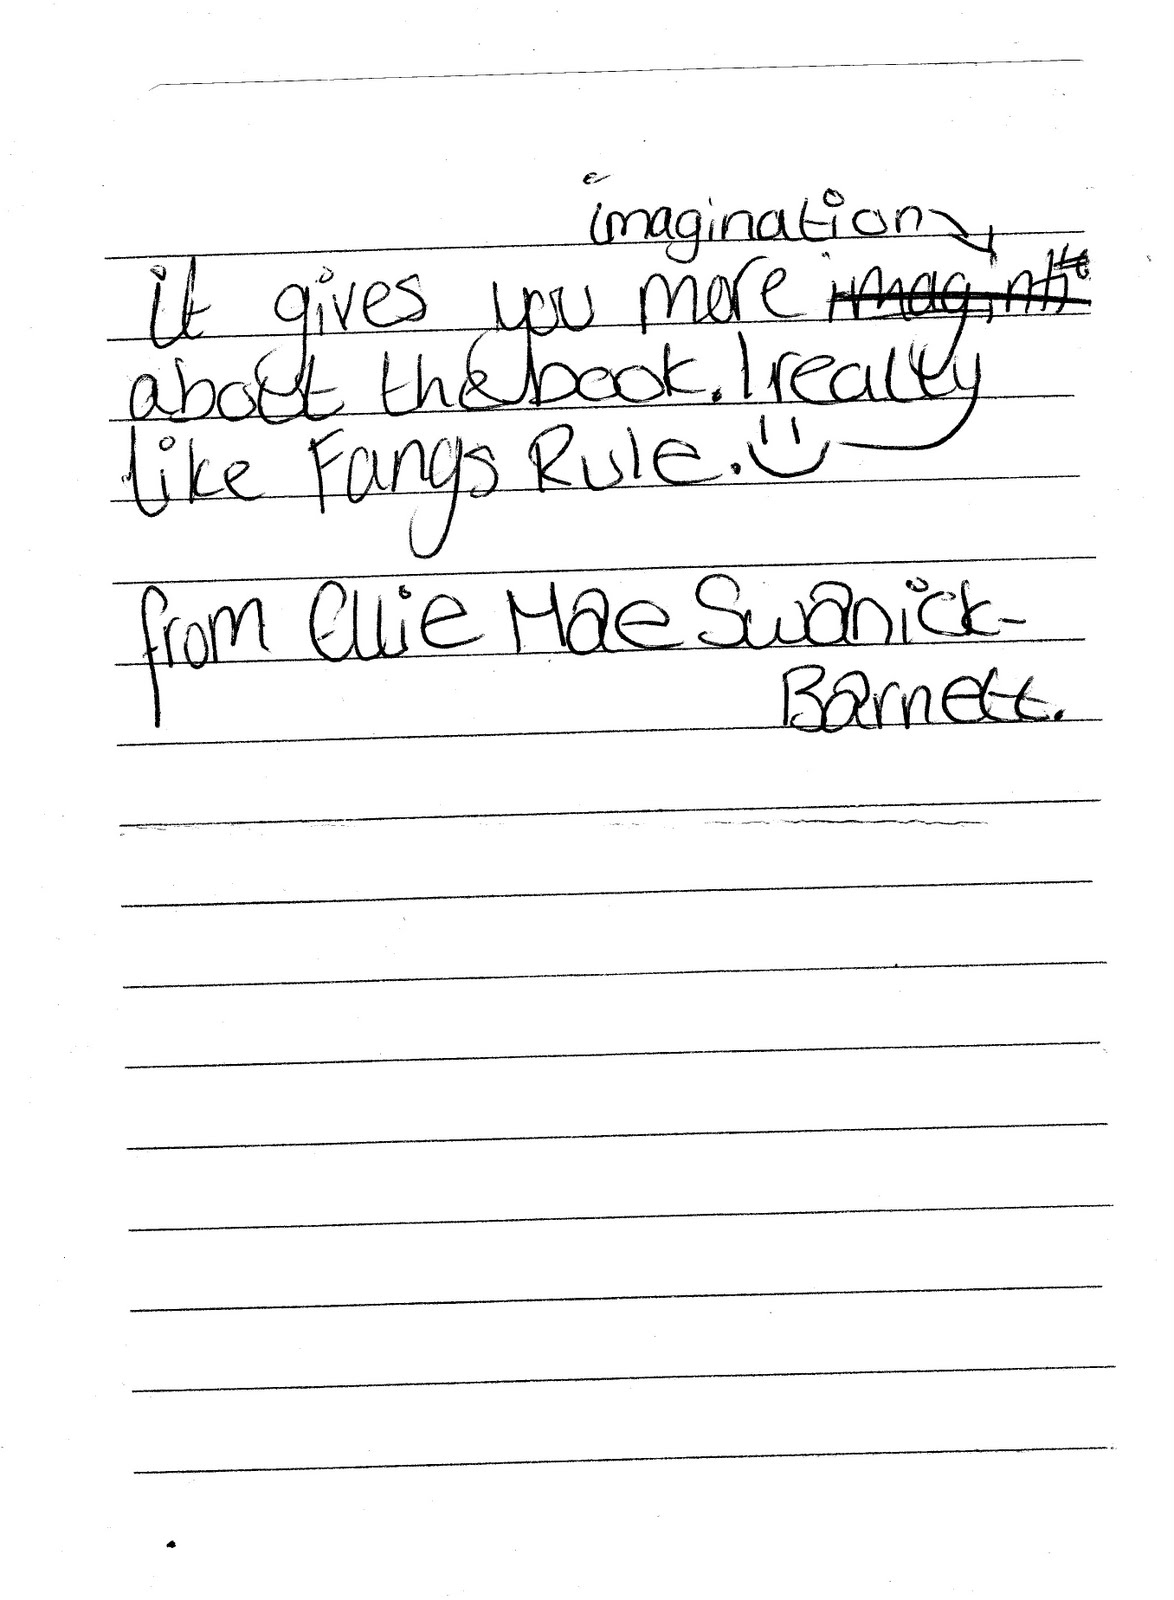 imagination
it gives you more imaginti
about the book. I really
like Fangs Rule.
from Ellie Mae Swanick-
Barnett.